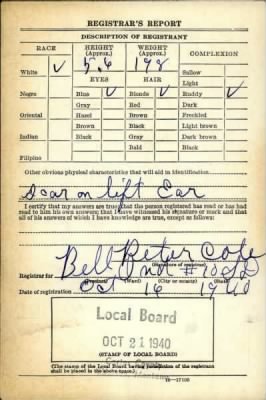 REGISTRAR'S REPORT
DESCRIPTION OF REGISTRANT
RACE HEIGHT (Approx.) WEIGHT (Approx.) COMPLEXION
White ✓ 5.6 198 Sallow
EYES HAIR Light
Negro Blue ✓ Blonde ✓ Ruddy ✓
Gray Red Dark
Oriental Hazel Brown Freckled
Brown Black Light brown
Indian Black Gray Dark brown
Bald Black
Filipino
Other obvious physical characteristics that will aid in identification
Scar on left Ear
I certify that my answers are true; that the person registered has read or has had
read to him his own answers; that I have witnessed his signature or mark and that
all of his answers of which I have knowledge are true, except as follows:
Peter Cope
(Signature of registrar)
Registrar for Bell
(Precinct) (Ward) (City or county) (State)
Date of registration Oct 16 1940
Local Board
OCT 21 1940
(STAMP OF LOCAL BOARD)
(The stamp of the Local Board having jurisdiction of the registrant
shall be placed in the above space.)
16—17105